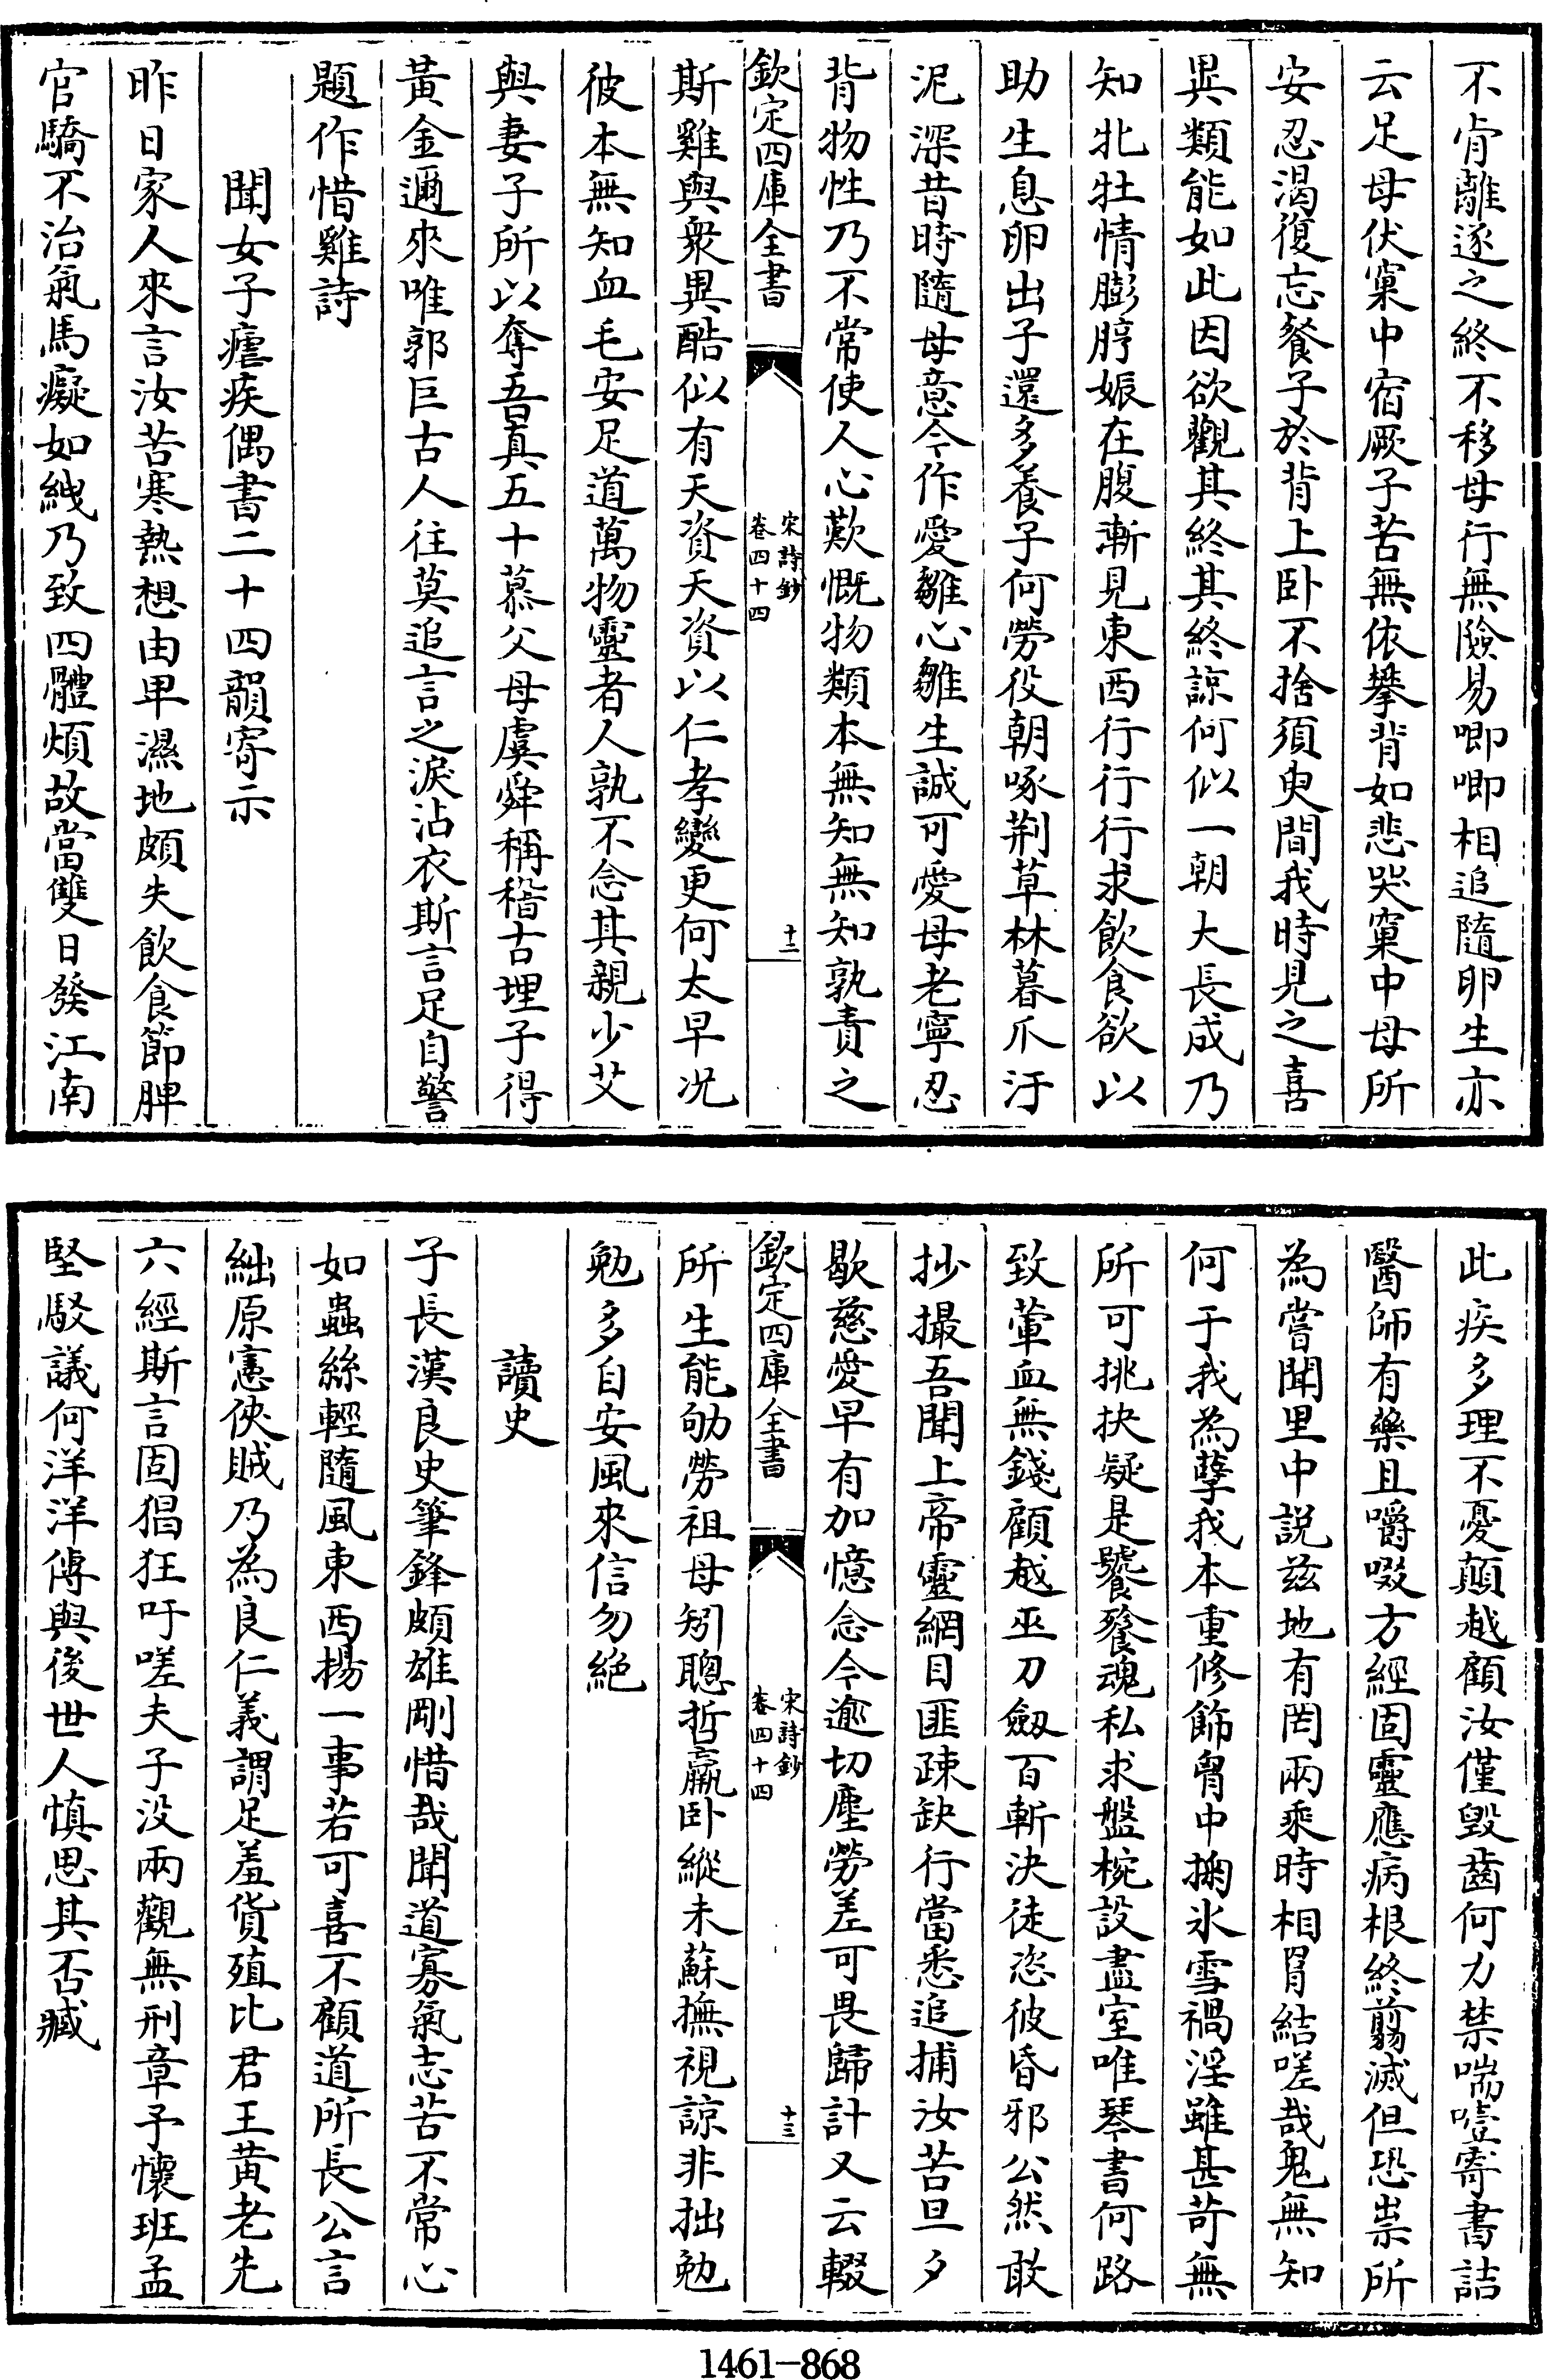 不肯離逐之終不移母行無險易唧唧相追隨卵生亦
云足母伏窠中宿厥子苦無依攀背如悲哭窠中母所
安忍渴復忘餐子於背上卧不捨須臾間我時見之喜
異類能如此因欲觀其終其終諒何似一朝大長成乃
知牝牡情膨脝娠在腹漸見東西行行行求飲食欲以
助生息卵出子還多養子何勞役朝啄荆草林暮爪汙
泥深昔時隨母意今作愛雛心雛生誠可愛母老寧忍
背物性乃不常使人心歎慨物類本無知無知孰責之
欽定四庫全書
宋詩鈔
卷四十四
十二
斯雞與衆異酷似有天資天資以仁孝變更何太早况
彼本無知血毛安足道萬物靈者人孰不念其親少艾
與妻子所以奪吾真五十慕父母虞舜稱稽古埋子得
黃金邇來唯郭巨古人往莫追言之淚沾衣斯言足自警
題作惜雞詩
聞女子瘧疾偶書二十四韻寄示
昨日家人來言汝苦寒熱想由卑濕地頗失飲食節脾
官驕不治氣馬癡如紲乃致四體煩故當雙日發江南
此疾多理不憂顛越顧汝僅毀齒何力禁喘噎寄書詰
醫師有藥且嚼啜方經固靈應病根終翦滅但恐祟所
為嘗聞里中説兹地有罔兩乘時相罥結嗟哉鬼無知
何于我為孽我本重修飾胷中掬氷雪禍淫雖甚苛無
所可挑抉疑是饕餮魂私求盤椀設盡室唯琴書何路
致葷血無錢顧越巫刀劔百斬決徒恣彼昏邪公然敢
抄撮吾聞上帝靈網目匪疎缺行當悉追捕汝苦旦夕
歇慈愛早有加憶念今逾切塵勞差可畏歸計又云輟
欽定四庫全書
宋詩鈔
卷四十四
十三
所生能劬勞祖母矧聰哲羸卧縱未蘇撫視諒非拙勉
勉多自安風來信勿絕
讀史
子長漢良史筆鋒頗雄剛惜哉聞道寡氣志苦不常心
如蟲絲輕隨風東西揚一事若可喜不顧道所長公言
絀原憲俠賊乃為良仁義謂足羞貨殖比君王黃老先
六經斯言固猖狂吁嗟夫子没兩觀無刑章予懷班孟
堅駁議何洋洋傳與後世人慎思其否臧
1461-868